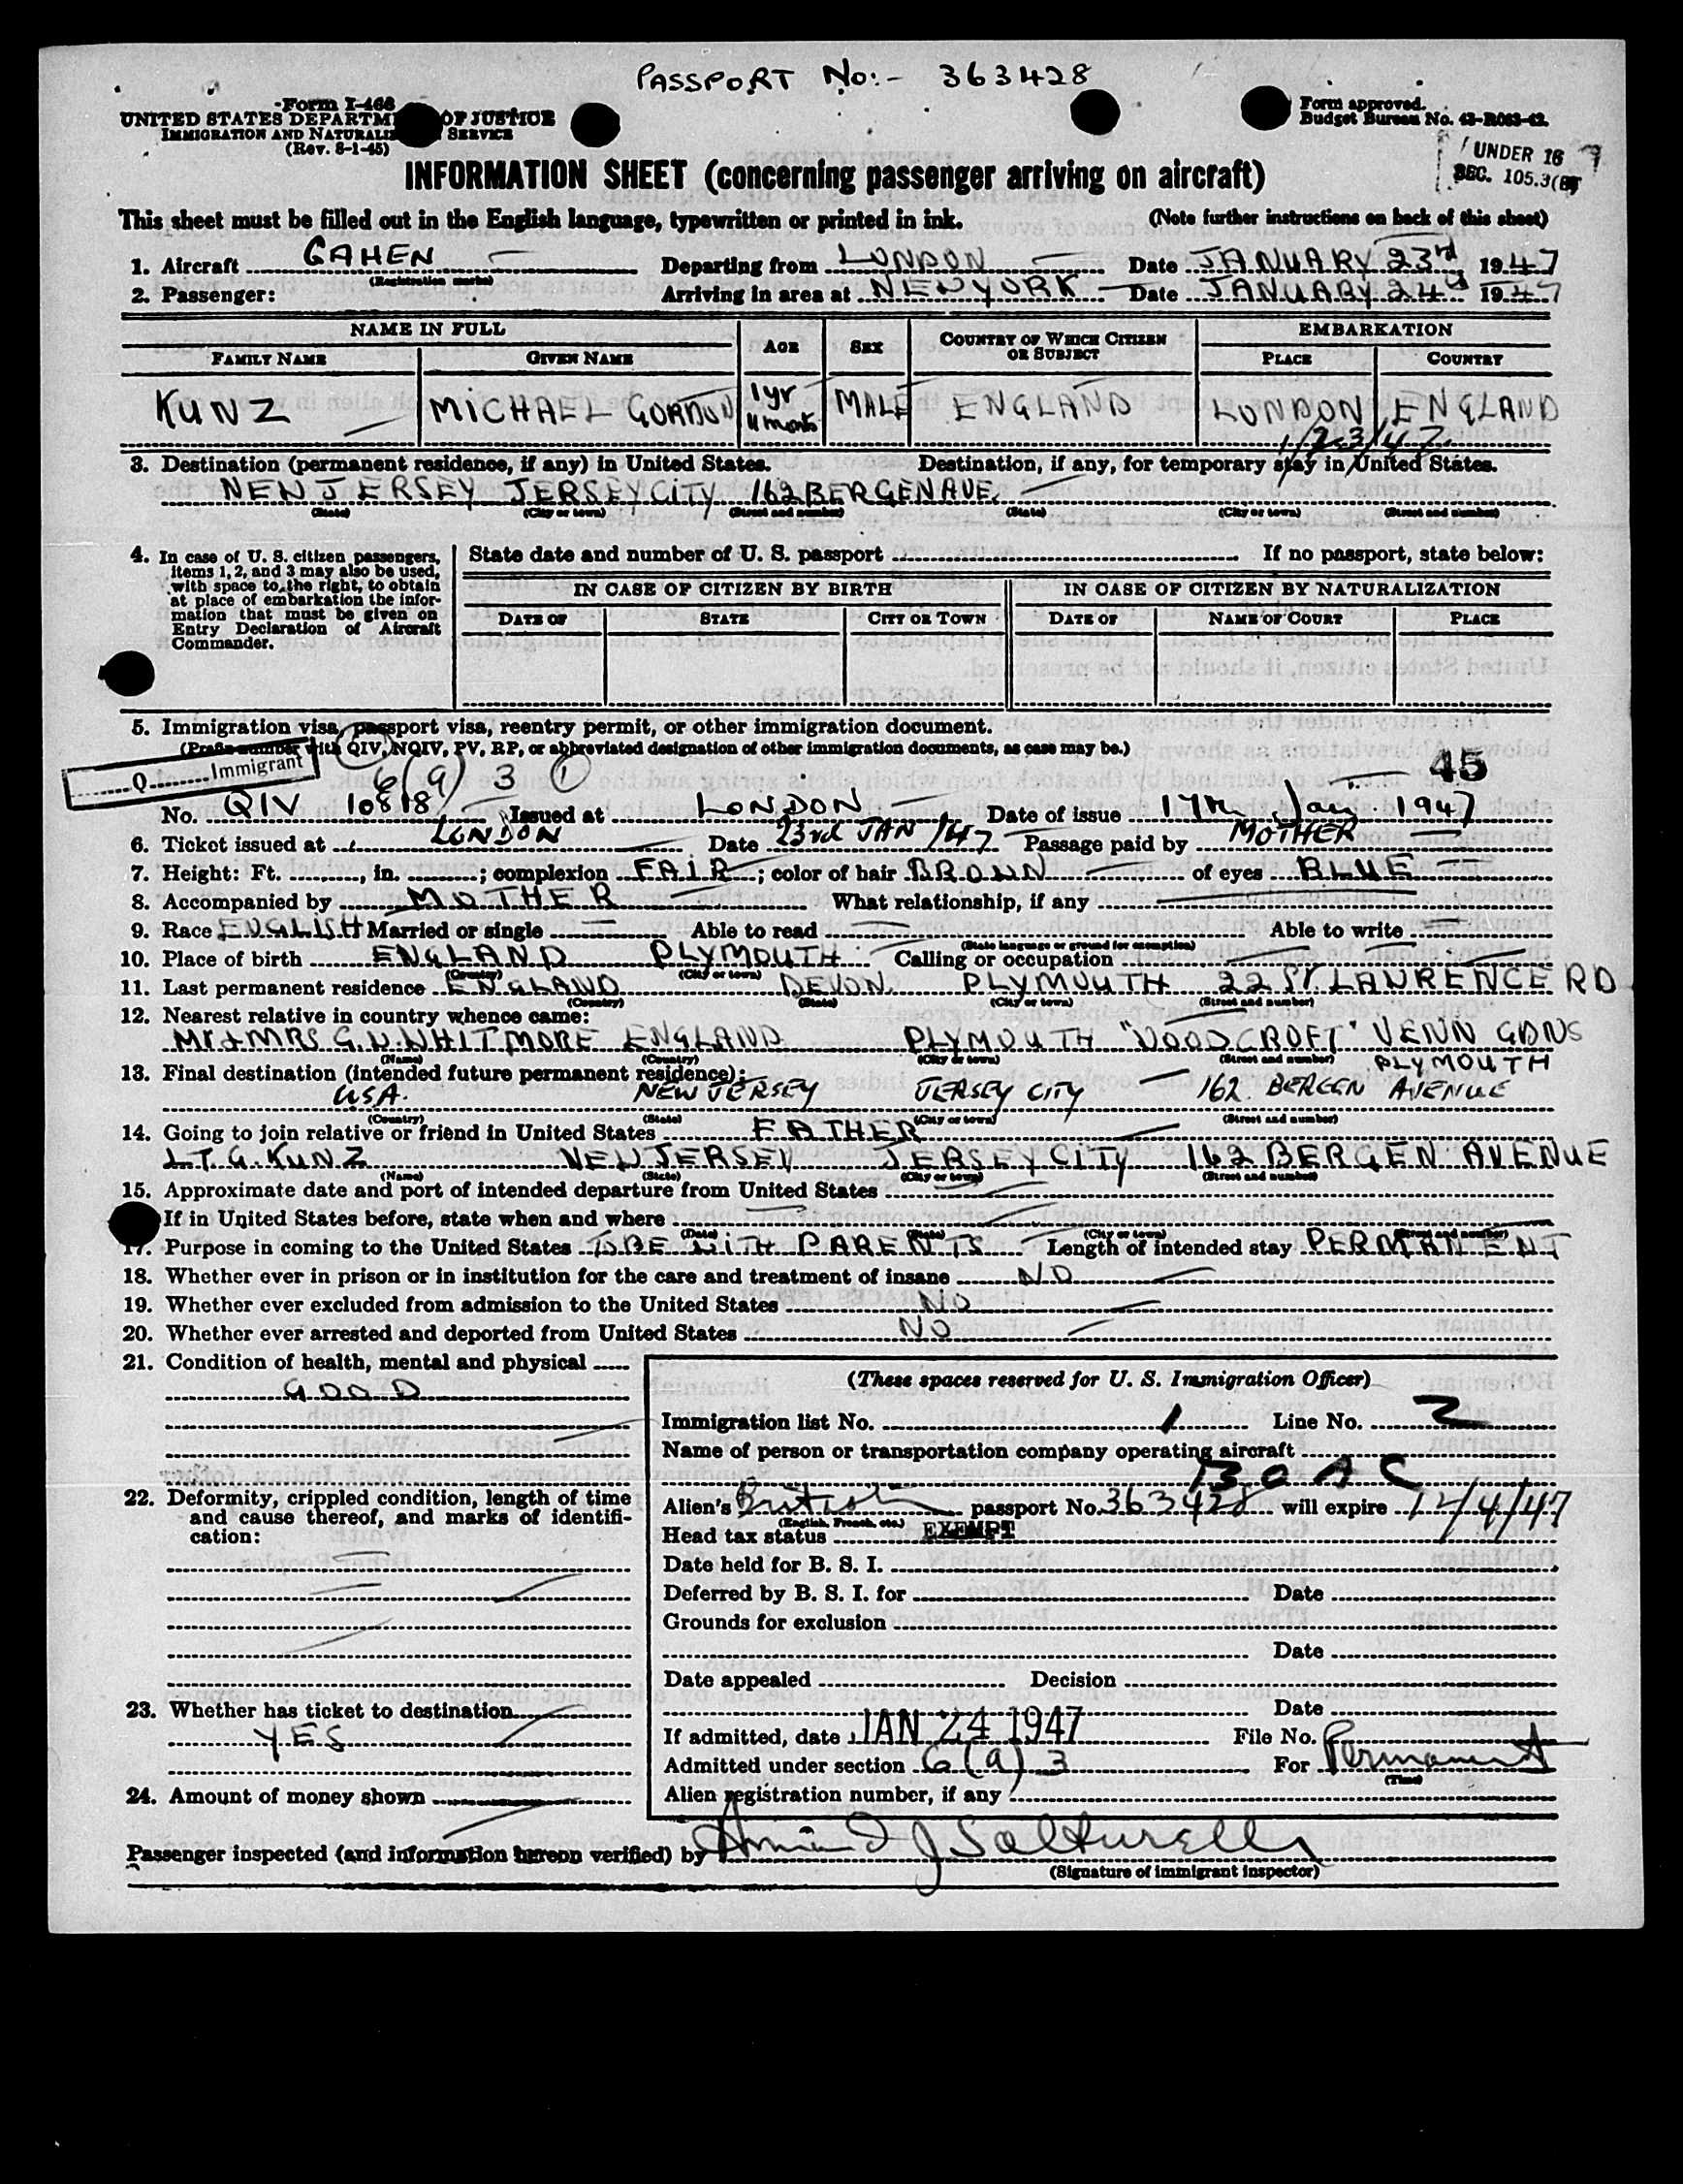 PASSPORT No:- 363428
Form I-466
UNITED STATES DEPARTM OF JUSTICE
IMMIGRATION AND NATURALIZ SERVICE
(Rev. 8-1-45)
Form approved.
Budget Bureau No. 43-R063-42.
UNDER 16
SEC. 105.3(B)
INFORMATION SHEET (concerning passenger arriving on aircraft)
This sheet must be filled out in the English language, typewritten or printed in ink. (Note further instructions on back of this sheet)
1. Aircraft GAHEN Departing from LONDON Date JANUARY 23rd 1947
(Registration marks)
2. Passenger: Arriving in area at NEW YORK Date JANUARY 24 1947
NAME IN FULL AGE SEX COUNTRY OF WHICH CITIZEN OR SUBJECT EMBARKATION
FAMILY NAME GIVEN NAME PLACE COUNTRY
KUNZ MICHAEL GORDON 1 yr 11 months MALE ENGLAND LONDON ENGLAND
1/23/47
3. Destination (permanent residence, if any) in United States. Destination, if any, for temporary stay in United States.
NEW JERSEY JERSEY CITY 162 BERGEN AVE.
(State) (City or town) (Street and number) (State) (City or town) (Street and number)
4. In case of U. S. citizen passengers, items 1, 2, and 3 may also be used, with space to the right, to obtain at place of embarkation the information that must be given on Entry Declaration of Aircraft Commander.
State date and number of U. S. passport If no passport, state below:
IN CASE OF CITIZEN BY BIRTH IN CASE OF CITIZEN BY NATURALIZATION
DATE OF STATE CITY OR TOWN DATE OF NAME OF COURT PLACE
5. Immigration visa, passport visa, reentry permit, or other immigration document.
(Prefix number with QIV, NQIV, PV, RP, or abbreviated designation of other immigration documents, as case may be.)
Q Immigrant
6(9) 3 1 45
No. QIV 10818 Issued at LONDON Date of issue 17th Jan. 1947
6. Ticket issued at LONDON Date 23rd JAN /47 Passage paid by MOTHER
7. Height: Ft. , in. ; complexion FAIR ; color of hair BROWN of eyes BLUE
8. Accompanied by MOTHER What relationship, if any
9. Race ENGLISH Married or single Able to read Able to write
(State language or ground for exemption)
10. Place of birth ENGLAND PLYMOUTH Calling or occupation
(Country) (City or town)
11. Last permanent residence ENGLAND DEVON PLYMOUTH 22 ST. LAWRENCE RD
(Country) (State) (City or town) (Street and number)
12. Nearest relative in country whence came:
Mr & MRS G.W. WHITMORE ENGLAND PLYMOUTH "WOODCROFT" VENN GDNS
(Name) (Country) (City or town) (Street and number) PLYMOUTH
13. Final destination (intended future permanent residence):
USA. NEW JERSEY JERSEY CITY 162 BERGEN AVENUE
(Country) (State) (City or town) (Street and number)
14. Going to join relative or friend in United States FATHER
LT. G. KUNZ NEW JERSEY JERSEY CITY 162 BERGEN AVENUE
(Name) (State) (City or town) (Street and number)
15. Approximate date and port of intended departure from United States
If in United States before, state when and where
(Date) (State) (City or town) (Street and number)
17. Purpose in coming to the United States TO BE WITH PARENTS Length of intended stay PERMANENT
18. Whether ever in prison or in institution for the care and treatment of insane NO
19. Whether ever excluded from admission to the United States NO
20. Whether ever arrested and deported from United States NO
21. Condition of health, mental and physical
GOOD
22. Deformity, crippled condition, length of time and cause thereof, and marks of identification:
23. Whether has ticket to destination
YES
24. Amount of money shown
(These spaces reserved for U. S. Immigration Officer)
Immigration list No. 1 Line No. 2
Name of person or transportation company operating aircraft
BOAC
Alien's British passport No. 363428 will expire 12/4/47
(English, French, etc.)
Head tax status EXEMPT
Date held for B. S. I.
Deferred by B. S. I. for Date
Grounds for exclusion
Date
Date appealed Decision
Date
If admitted, date JAN 24 1947 File No.
Admitted under section 6(a)3 For Permanent
(Time)
Alien registration number, if any
Passenger inspected (and information hereon verified) by
(Signature of immigrant inspector)